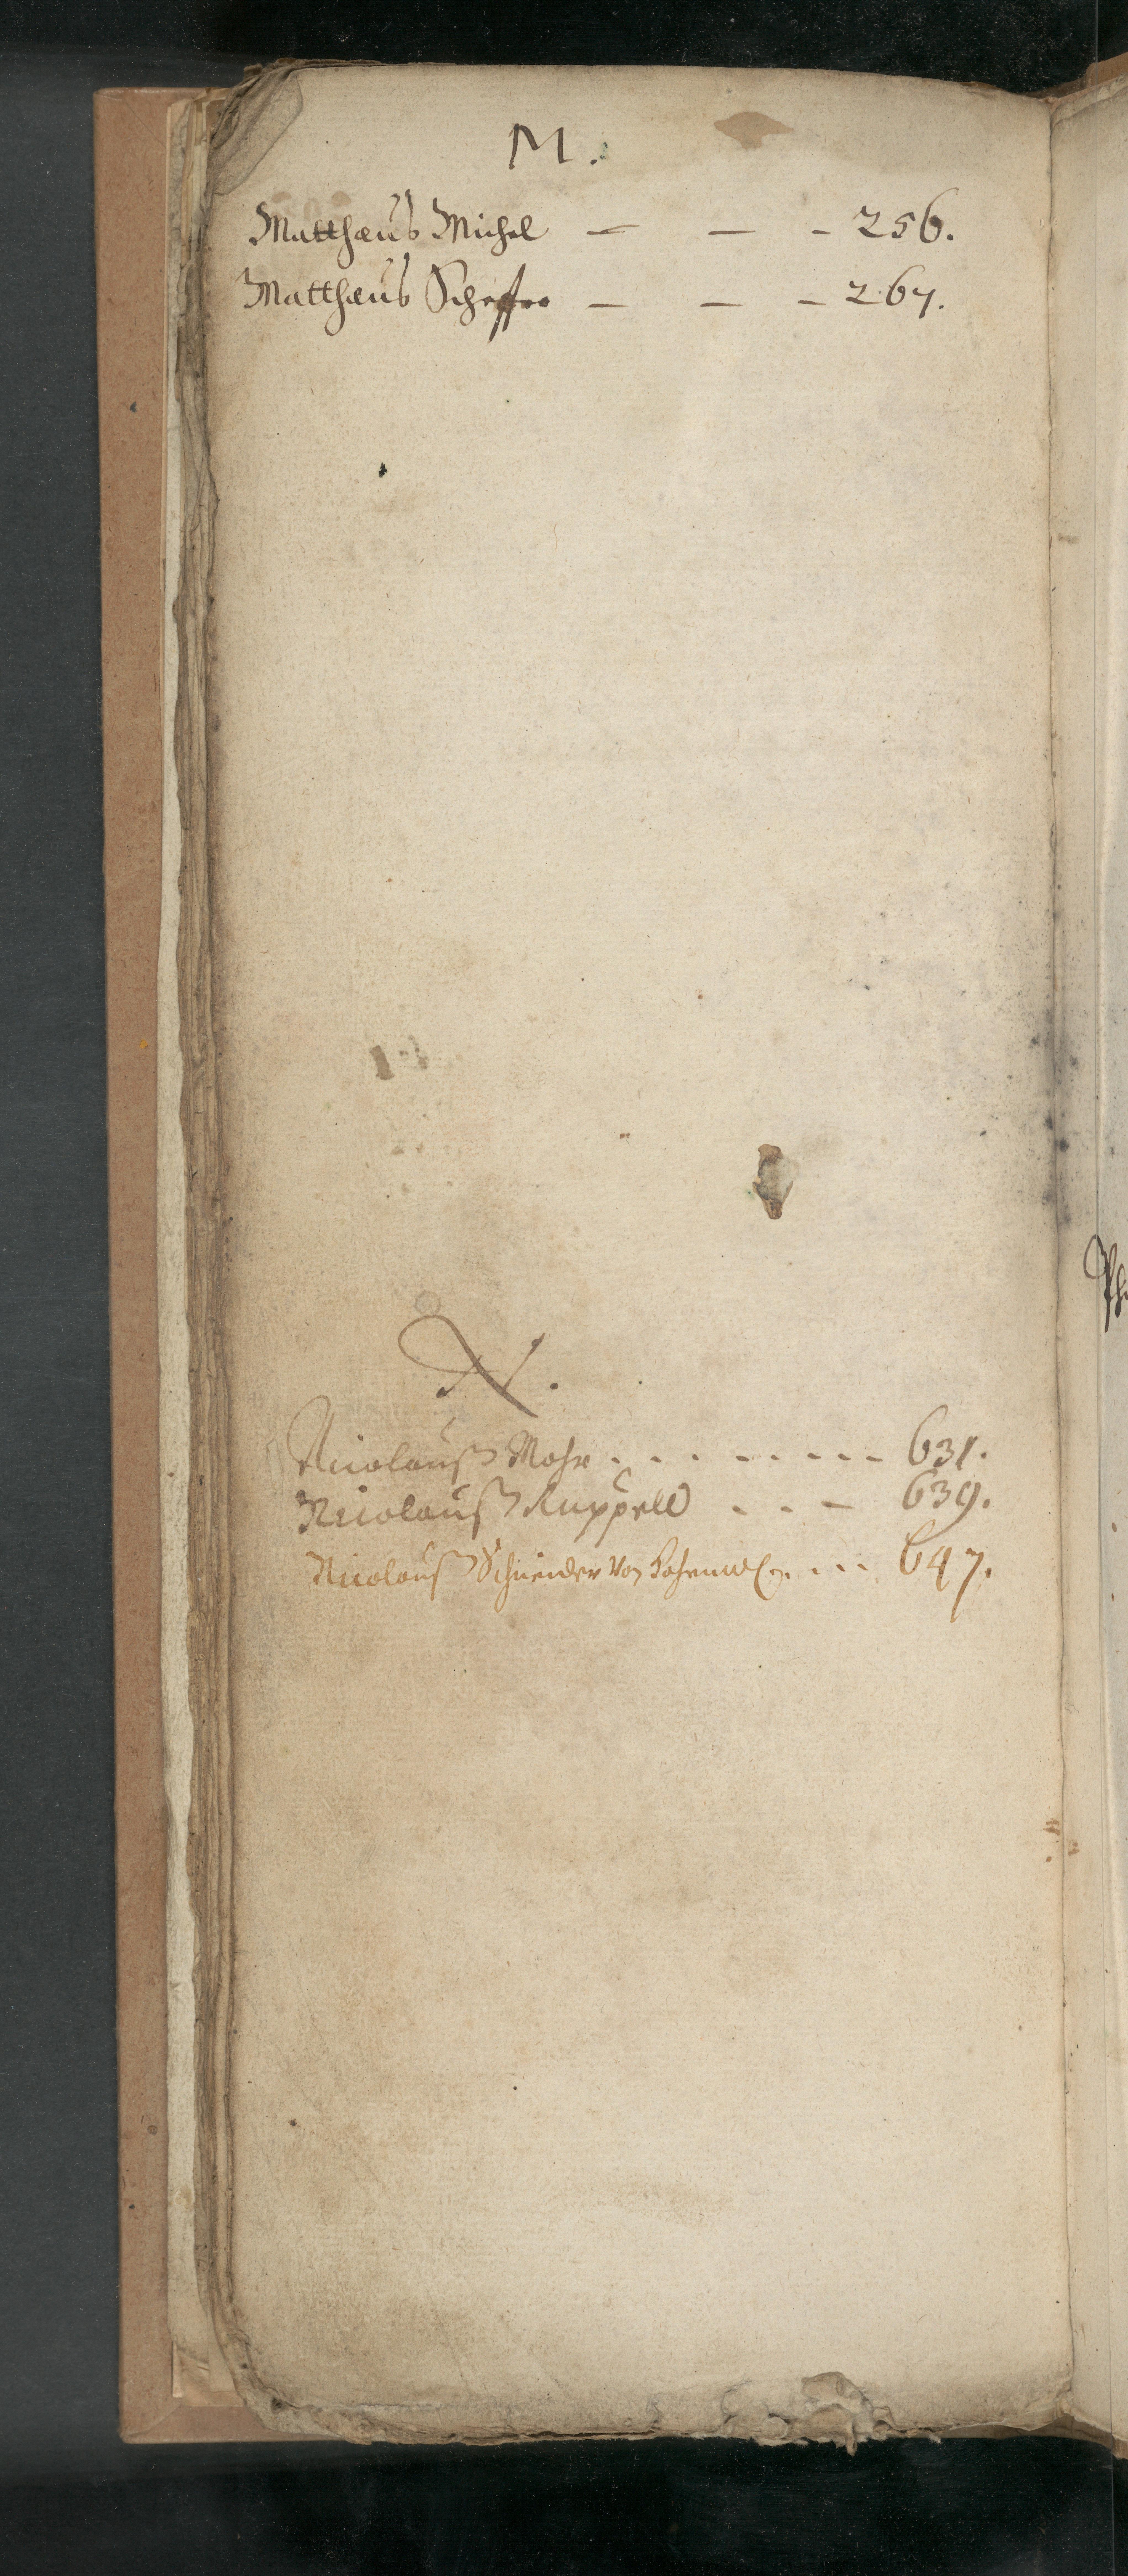 M.
Matthæus Michel — — - 256.
Matthæus Scheffer — — - 267.
N.
Nicolauß Mohr . . . - - - - - 631.
Nicolauß Ruppell . . - 639.
Nicolauß Schneider Von . . . 647.
Ph